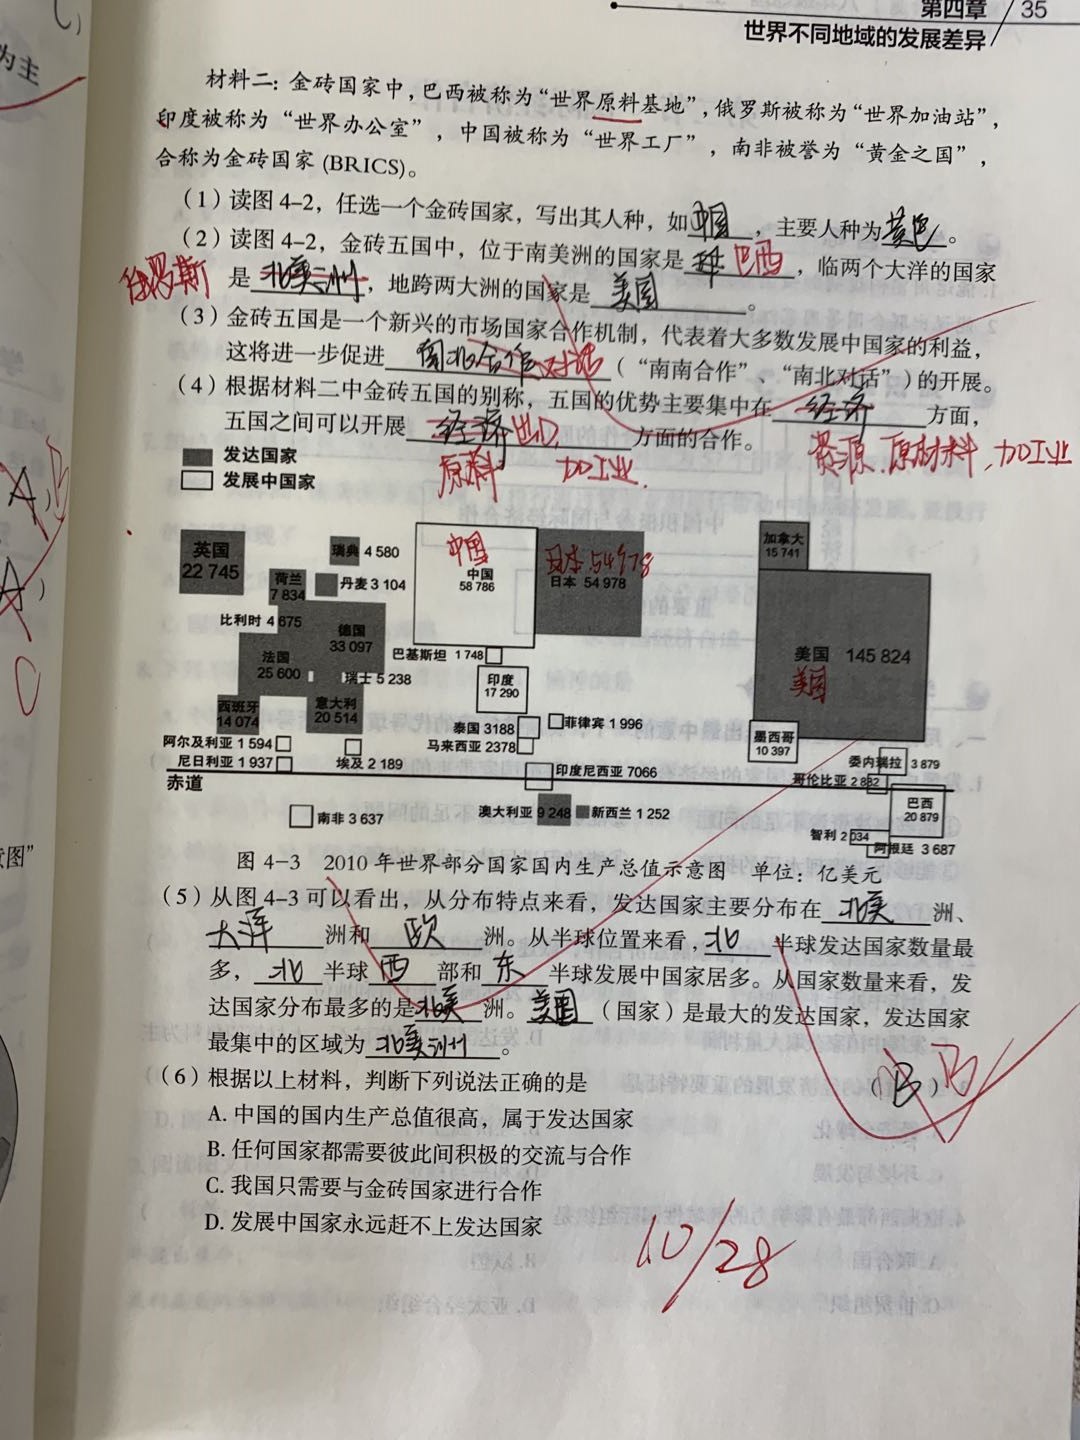 第四章 35
世界不同地域的发展差异
为主
材料二：金砖国家中，巴西被称为“世界原料基地”，俄罗斯被称为“世界加油站”，
印度被称为“世界办公室”，中国被称为“世界工厂”，南非被誉为“黄金之国”，
合称为金砖国家 (BRICS)。
（1）读图 4-2，任选一个金砖国家，写出其人种，如中国，主要人种为黄色。
（2）读图 4-2，金砖五国中，位于南美洲的国家是 巴西，临两个大洋的国家
俄罗斯 是 北美洲，地跨两大洲的国家是 美国。
（3）金砖五国是一个新兴的市场国家合作机制，代表着大多数发展中国家的利益，
这将进一步促进 南北合作 对话（“南南合作”、“南北对话”）的开展。
（4）根据材料二中金砖五国的别称，五国的优势主要集中在 经济 方面，
五国之间可以开展 经济 出口 方面的合作。
原料 加工业. 资源、原材料、加工业
发达国家
发展中国家
英国 22 745
瑞典 4 580
荷兰 7 834
丹麦 3 104
比利时 4 675
德国 33 097
法国 25 600
瑞士 5 238
西班牙 14 074
意大利 20 514
阿尔及利亚 1 594
尼日利亚 1 937
埃及 2 189
中国
中国 58 786
日本 54978
日本 54 978
巴基斯坦 1 748
印度 17 290
泰国 3188
菲律宾 1 996
马来西亚 2378
印度尼西亚 7066
加拿大 15 741
美国 145 824
美国
墨西哥 10 397
委内瑞拉 3 879
哥伦比亚 2 882
赤道
南非 3 637
澳大利亚 9 248
新西兰 1 252
巴西 20 879
智利 2 034
阿根廷 3 687
图 4-3 2010 年世界部分国家国内生产总值示意图 单位：亿美元
意图”
（5）从图 4-3 可以看出，从分布特点来看，发达国家主要分布在 北美 洲、
大洋 洲和 欧 洲。从半球位置来看，北 半球发达国家数量最
多，北 半球 西 部和 东 半球发展中国家居多。从国家数量来看，发
达国家分布最多的是北美 洲。美国（国家）是最大的发达国家，发达国家
最集中的区域为 北美洲。
（6）根据以上材料，判断下列说法正确的是 （B）B
A. 中国的国内生产总值很高，属于发达国家
B. 任何国家都需要彼此间积极的交流与合作
C. 我国只需要与金砖国家进行合作
D. 发展中国家永远赶不上发达国家
10/28